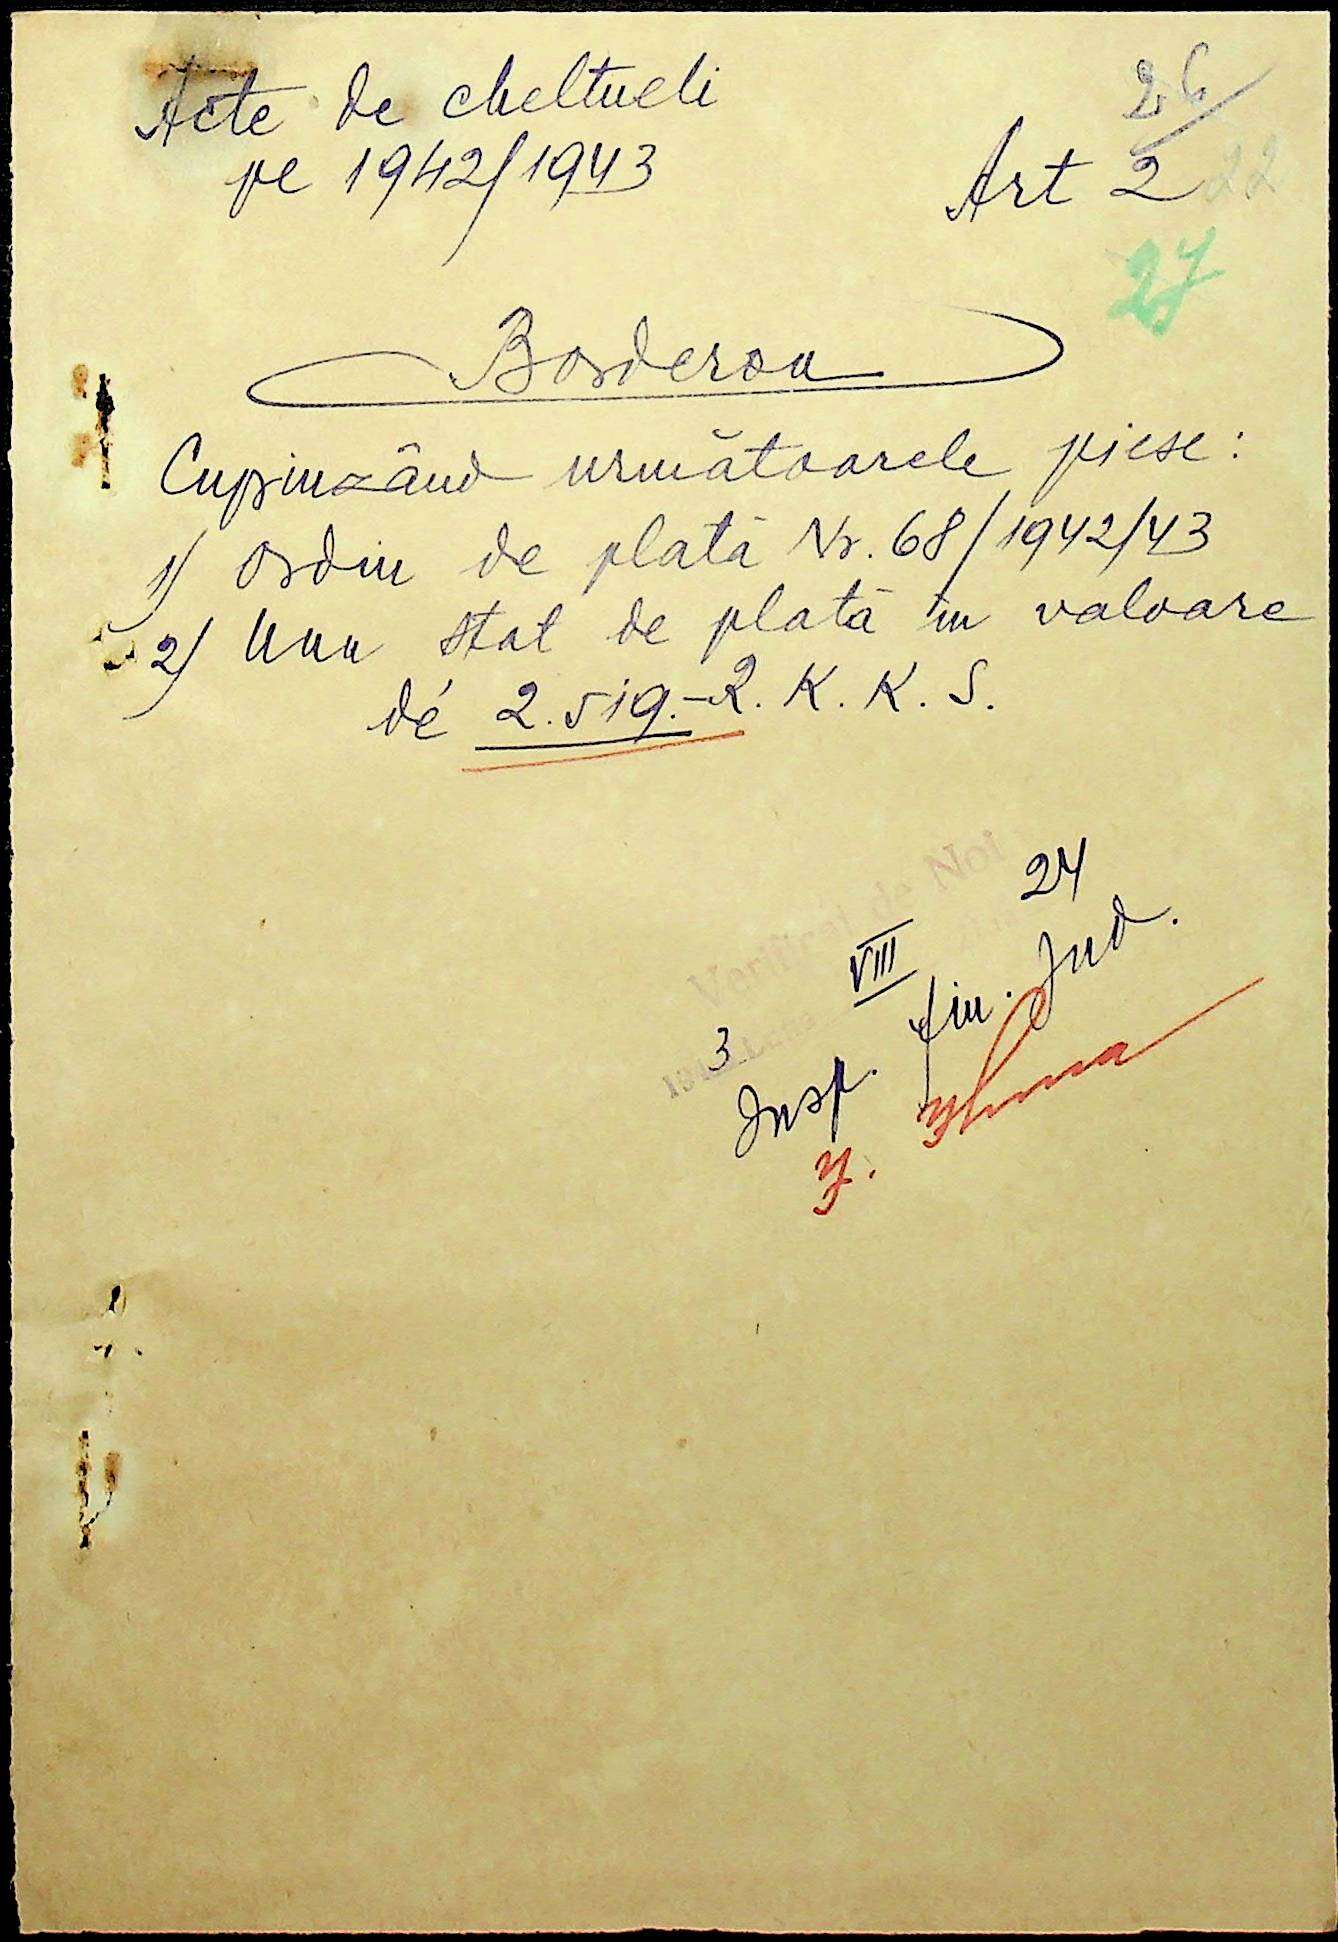 26
Acte de cheltueli
pe 1942/1943
Art 2
22
27
Borderou
Cuprinzând următoarele piese:
1) Ordin de plată Nr. 68/1942/43
2) Unu stat de plată în valoare
de 2.519.- R. K. K. S.
Verificat de Noi
24
VIII
3
Insp. fin. Jud.